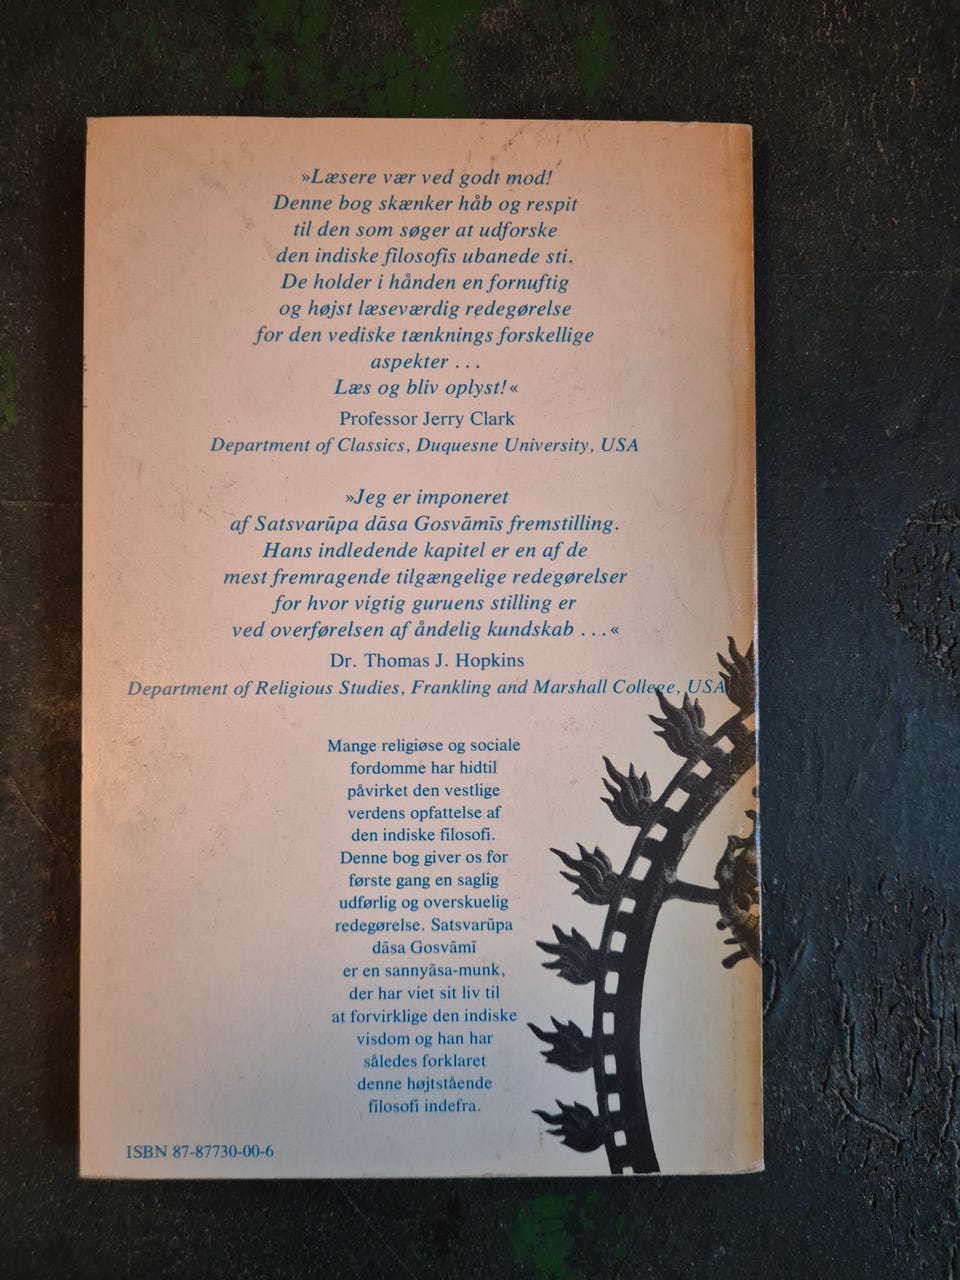 »Læsere vær ved godt mod!
Denne bog skænker håb og respit
til den som søger at udforske
den indiske filosofis ubanede sti.
De holder i hånden en fornuftig
og højst læseværdig redegørelse
for den vediske tænknings forskellige
aspekter . . .
Læs og bliv oplyst!«
Professor Jerry Clark
Department of Classics, Duquesne University, USA
»Jeg er imponeret
af Satsvarūpa dāsa Gosvāmīs fremstilling.
Hans indledende kapitel er en af de
mest fremragende tilgængelige redegørelser
for hvor vigtig guruens stilling er
ved overførelsen af åndelig kundskab . . .«
Dr. Thomas J. Hopkins
Department of Religious Studies, Frankling and Marshall College, USA
Mange religiøse og sociale
fordomme har hidtil
påvirket den vestlige
verdens opfattelse af
den indiske filosofi.
Denne bog giver os for
første gang en saglig
udførlig og overskuelig
redegørelse. Satsvarūpa
dāsa Gosvāmī
er en sannyāsa-munk,
der har viet sit liv til
at forvirklige den indiske
visdom og han har
således forklaret
denne højtstående
filosofi indefra.
ISBN 87-87730-00-6